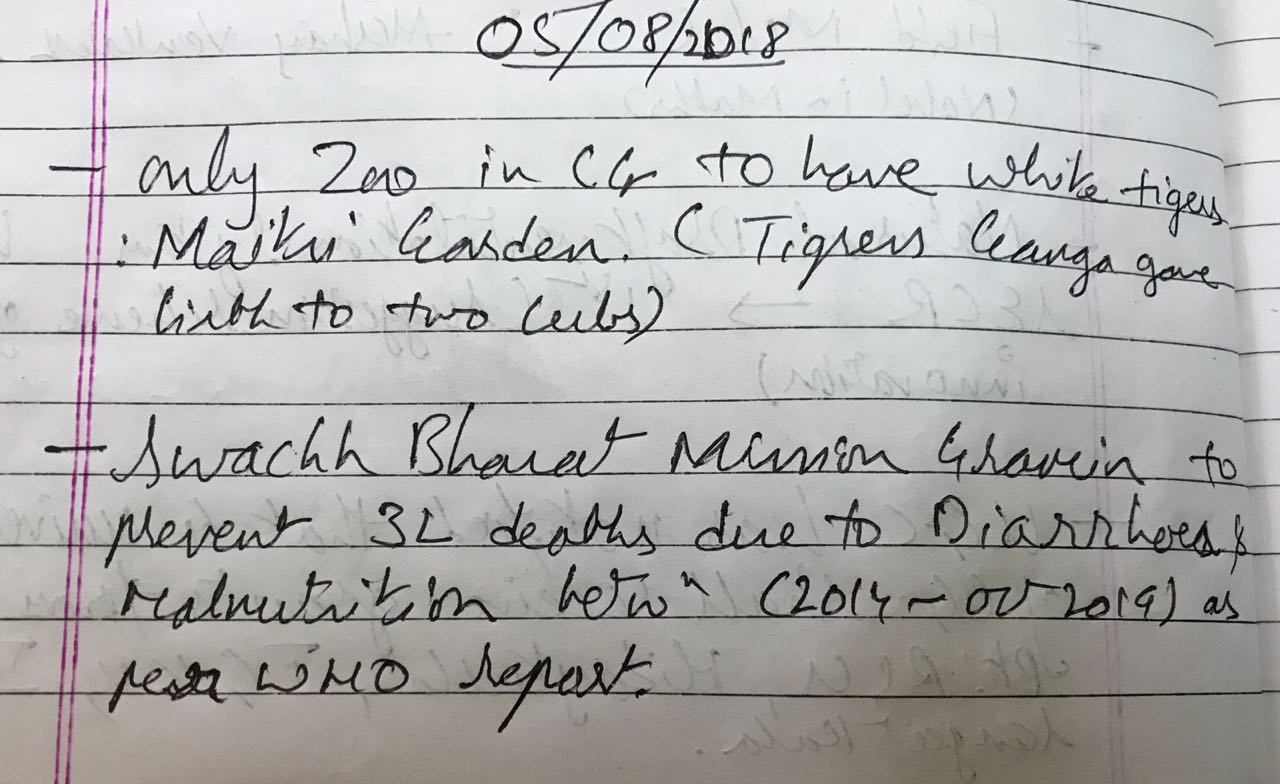 05/08/2018
- only Zoo in CG to have white tigers
: Maitri Garden. ( Tigress Ganga gave
birth to two cubs)
- Swachh Bharat Mission Gramin to
prevent 3L deaths due to Diarrhoea &
malnutrition betwⁿ (2014 - 2019) as
per WHO report.